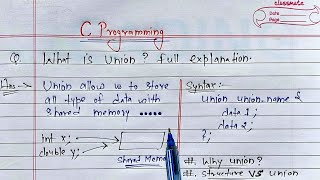 classmate
Date
Page
C Programming
Q. What is union? full explanation.
Ans.→ Union allow us to store
all type of data with
shared memory ......
int x;
double y;
Shared Memo
Syntax:-
union union-name {
data 1;
data 2;
};
#. Why union?
#. Structure VS Union